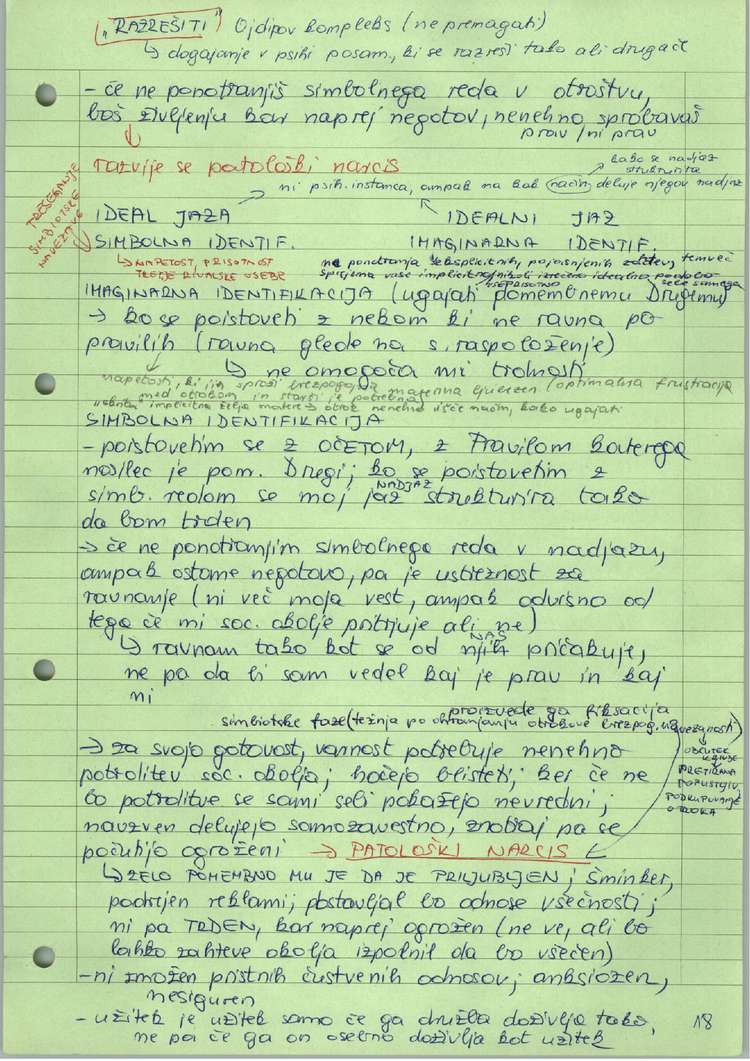 "RAZREŠITI" Ojdipov kompleks (ne premagati)
↳ dogajanje v psihi posam., ki se razreši tako ali drugače
- če ne ponotranjiš simbolnega reda v otroštvu,
boš življenju kar naprej negotov, nenehno sprobavaš
prav / ni prav
razvije se patološki narcis
kako se nadjaz
strukturira
ni psih. instanca, ampak na kak način deluje njegov nadjaz
PRESEGANJE
SIMBIOTSKE
NAVEZAVE
IDEAL JAZA IDEALNI JAZ
SIMBOLNA IDENTIF. IMAGINARNA IDENTIF.
↳ NAPETOST, PRISOTNOST
TRETJE RIVALSKE OSEBE
ne ponotranja eksplicitnih, pojasnjenih zahtev, temveč
sprejema vase implicitno, nikoli izrečeno idealno podobo
sebe samega
VSEPRISOTNO
IMAGINARNA IDENTIFIKACIJA (ugajati pomembnemu Drugemu)
→ ko se poistoveti z nekom ki ne ravna po
pravilih (ravna glede na s. razpoloženje)
↳ ne omogoča mi trdnosti
napetosti, ki jih sproži brezpogojna materina ljubezen (optimalna frustracija
med otrokom in starši je potrebna)
implicitna želja matere → otrok nenehno išče način, kako ugajati
SIMBOLNA IDENTIFIKACIJA
- poistovetim se z OČETOM, z Pravilom katerega
nosilec je pom. Drugi; ko se poistovetim z
NADJAZ
simb. redom se moj jaz strukturira tako
da bom trden
→ če ne ponotranjim simbolnega reda v nadjazu,
ampak ostane negotovo, pa je ustreznost za
ravnanje (ni več moja vest, ampak odvisno od
tega če mi soc. okolje pritrjuje ali ne)
NAS
↳ ravnam tako kot se od njih pričakuje,
ne pa da bi sam vedel kaj je prav in kaj
ni
proizvede ga fiksacija
simbiotske faze (težnja po ohranjanju otrokove brezpog. navezanosti)
→ za svojo gotovost, varnost potrebuje nenehno
potrditev soc. okolja; hočejo blesteti; ker če ne
bo potrditve se sami sebi pokažejo nevredni;
navzven delujejo samozavestno, znotraj pa se
počutijo ogroženi → PATOLOŠKI NARCIS
OBČUTEK
KRIVDE
PRETIRANA
POPUSTLJIV.
PODKUPOVANJE
OTROKA
↳ ZELO POMEMBNO MU JE DA JE PRILJUBLJEN; šminker,
podrejen reklami; postavljal bo odnose všečnosti;
ni pa TRDEN, kar naprej ogrožen (ne ve, ali bo
lahko zahteve okolja izpolnil da bo všečen)
- ni zmožen pristnih čustvenih odnosov; anksiozen,
nesiguren
- užitek je užitek samo če ga družba doživlja tako,
ne pa če ga on osebno doživlja kot užitek
18